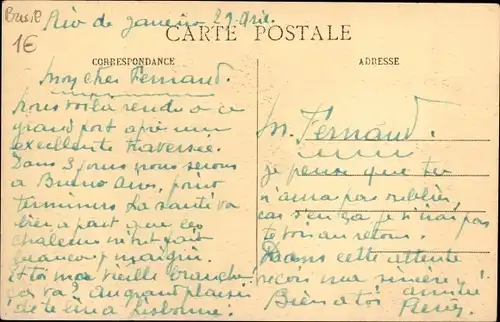 Brésil
1€
Rio de Janeiro 29 Avril.
CARTE POSTALE
CORRESPONDANCE
ADRESSE
Mon cher Fernand.
Nous voilà rendu a ce
grand port après une
excellente traversée.
Dans 3 jours nous serons
a Buenos Aires, point
terminus. La santé va
bien a part que les
chaleurs m'ont fait
beaucoup maigrir.
Et toi ma vieille branche
ça va? Au grand plaisir
de te lire a Lisbonne.
M. Fernand.
je pense que tu
n'aura pas oublié,
car s'en ça je n'irai pas
te voir au retour.
Dans cette attente
reçois ma sincère amitié
Bien à toi